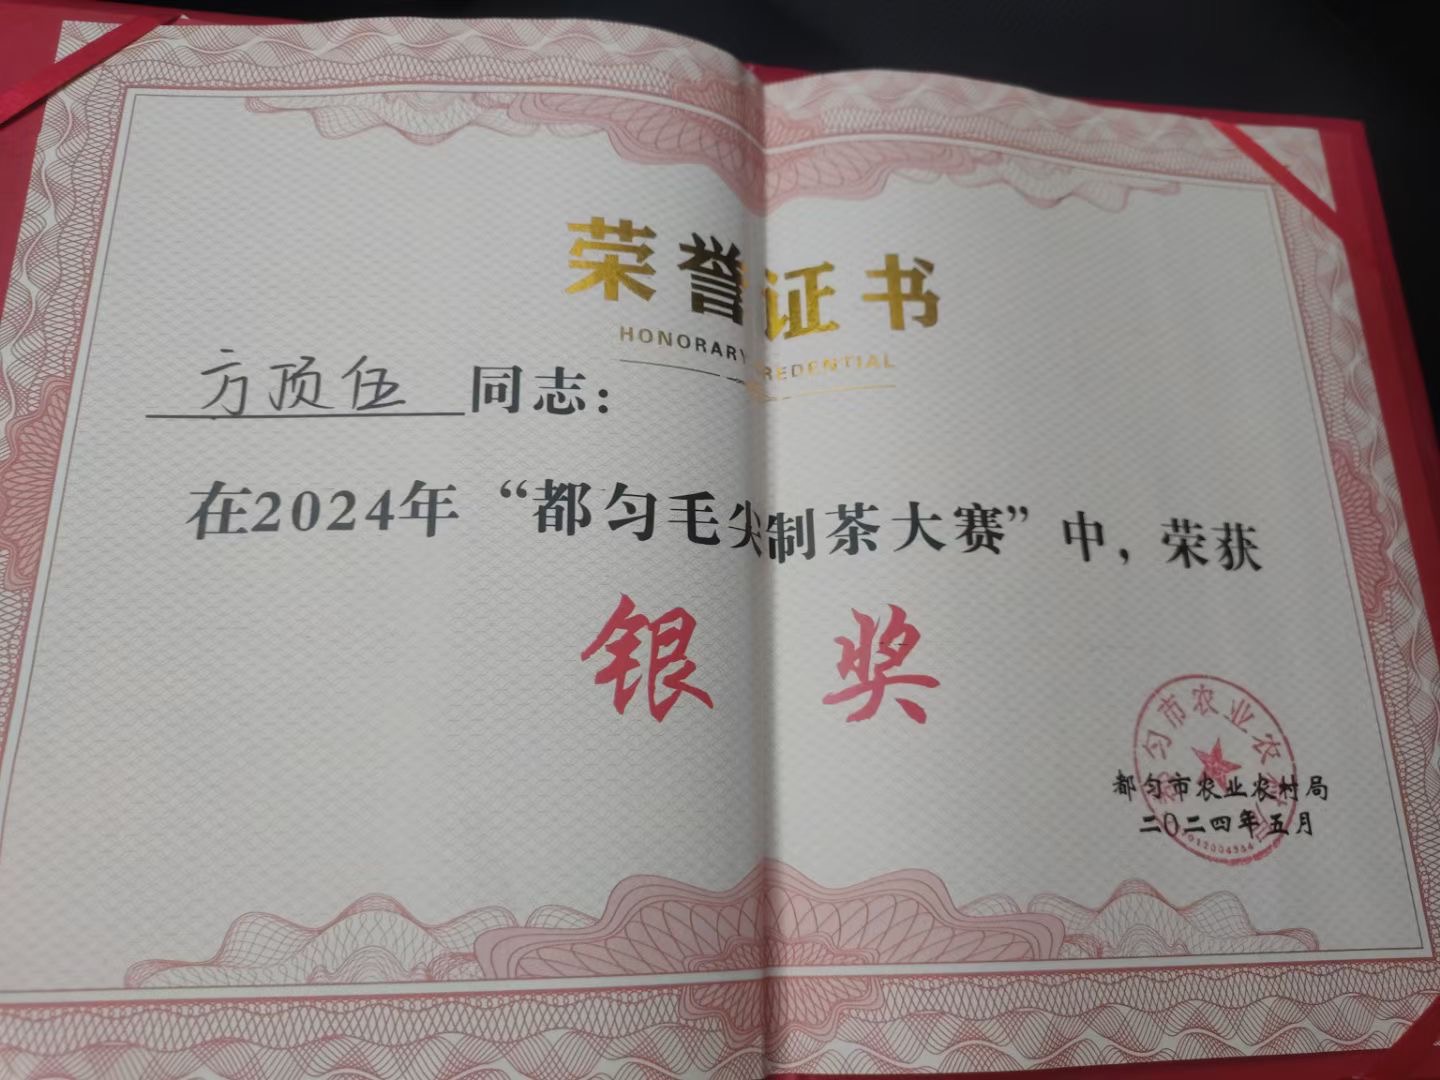 荣誉证书
HONORARY CREDENTIAL
方顶伍 同志：
在2024年“都匀毛尖制茶大赛”中，荣获
银奖
都匀市农业农村局
二〇二四年五月